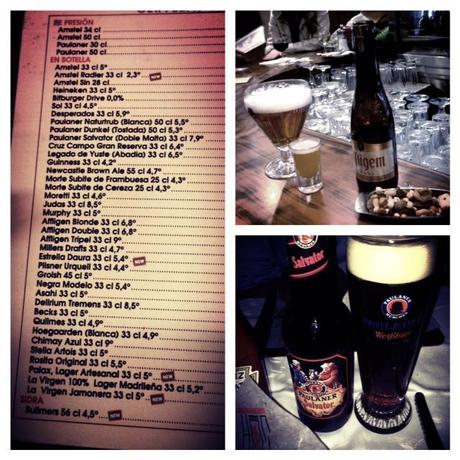 DE PRESIÓN
Amstel 34 cl
Amstel 50 cl
Paulaner 30 cl
Paulaner 50 cl
EN BOTELLA
Amstel 33 cl 5°
Amstel Radler 33 cl 2,3° NEW
Amstel Sin 28 cl
Heineken 33 cl 5°
Bitburger Drive 0,0%
Sol 33 cl 4,5°
Desperados 33 cl 5,9°
Paulaner Naturtrub (Blanca) 50 cl 5,5°
Paulaner Dunkel (Tostada) 50 cl 5,3°
Paulaner Salvator (Doble Malta) 33 cl 7,9°
Cruz Campo Gran Reserva 33 cl 6,4°
Legado de Yuste (Abadia) 33 cl 6,5°
Guinness 33 cl 4,2°
Newcastle Brown Ale 55 cl 4,7°
Morte Subite de Frambuesa 25 cl 4,3°
Morte Subite de Cereza 25 cl 4,3°
Moretti 33 cl 4,6°
Judas 33 cl 8,5°
Murphy 33 cl 5°
Affligen Blonde 33 cl 6,8°
Affligen Double 33 cl 6,8°
Affligen Tripel 33 cl 9°
Millers Drafts 33 cl 4,7°
Estrella Daura 33 cl 5,4° NEW
Pilsner Urquell 33 cl 4,4° NEW
Grolsh 45 cl 5°
Negra Modelo 33 cl 5°
Asahi 33 cl 5°
Delirium Tremens 33 cl 8,5°
Becks 33 cl 5°
Quilmes 33 cl 4,9°
Hoegaarden (Blanca) 33 cl 4,9°
Chimay Azul 33 cl 9°
Stella Artois 33 cl 5°
Rosita Original 33 cl 5,5°
Palax, Lager Artesanal 33 cl 5° NEW
La Virgen 100% Lager Madrileña 5,2° NEW
La Virgen Jamonera 33 cl 5° NEW
SIDRA
Bullmers 56 cl 4,5° NEW
fligem
Salvator
PAULANER
Salvator
PAULANER
Weißbier